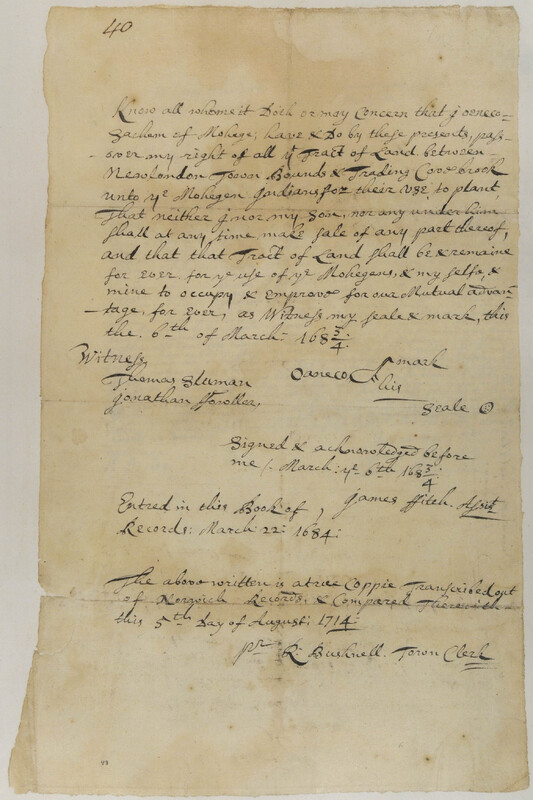 40
Know all whome it Doth or may Concern that J oeneco
Sachem of Mohege; have & Do by these presents, pass
over my right of all ye Tract of Land between
Newlondon Town Bounds & Trading Cove brook
unto ye Mohegen Indians for their use to plant
That neither J nor my Son, nor any under him
shall at any time make sale of any part thereof,
and that that Tract of Land shall be & remaine
for Ever, for ye use of ye Mohegens, & my selfe, &
mine to occupy & Emprove for our Mutual advan-
tage, for Ever, as Witness my seale & mark, this
the 6th of March: 168 3/4:
Witness,
Thomas Sluman
Jonathan ffowller,
Oaneco mark
his
Seale
Signed & acknowledged before
me /: March: ye 6th 168 3/4:
James ffitch. Asist
Entred in this Book of,
Records: March: 22: 1684:
The above written is a true Coppie Transcribed out
of Norwich Records, & Compared Therewith
this 5th Day of August: 1714:
pr R: Bushnell. Town Clerk